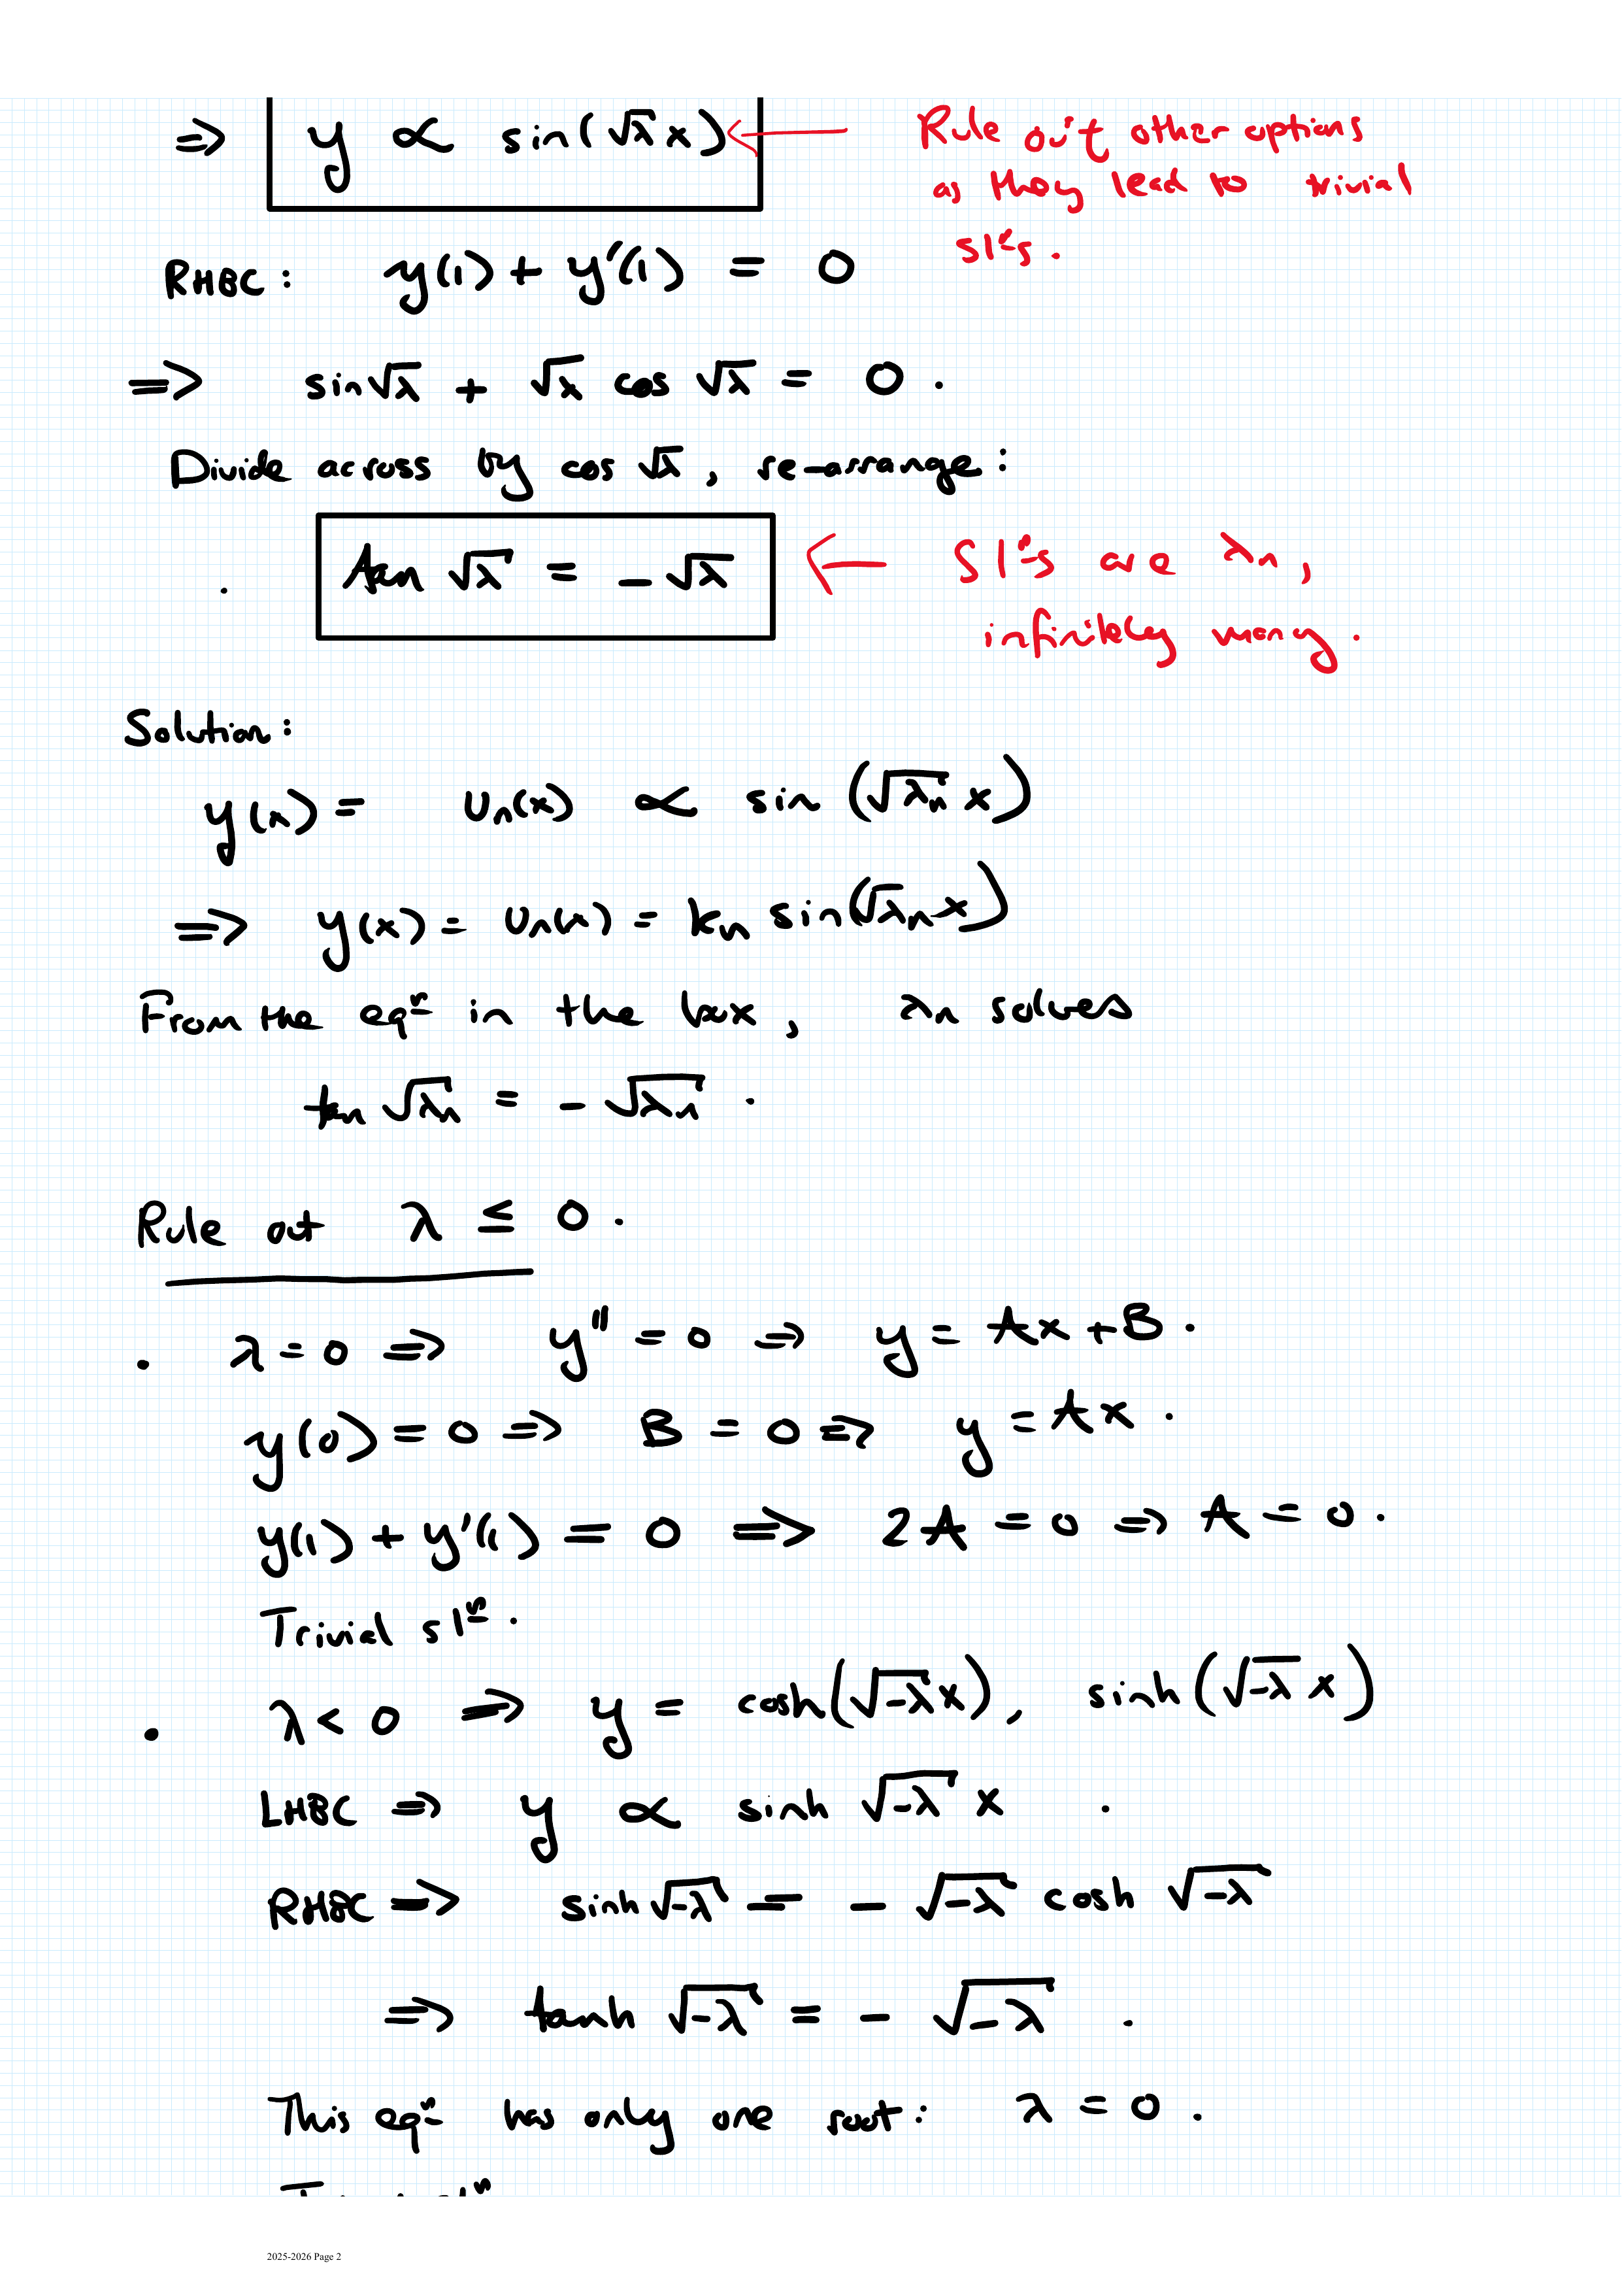 ⇒ y ∝ sin(√λ x) ← Rule out other options
as they lead to trivial
slⁿs.
RHBC: y(1) + y'(1) = 0
⇒ sin√λ + √λ cos √λ = 0.
Divide across by cos √λ, re-arrange:
. tan √λ = -√λ ← Slⁿs are λn,
infinitely many.
Solution:
y(x) = Un(x) ∝ sin (√λn x)
⇒ y(x) = Un(x) = kn sin(√λn x)
From the eqⁿ in the box, λn solves
tan √λn = -√λn.
Rule out λ ≤ 0.
. λ = 0 ⇒ y'' = 0 ⇒ y = Ax + B.
y(0) = 0 ⇒ B = 0 ⇒ y = Ax.
y(1) + y'(1) = 0 ⇒ 2A = 0 ⇒ A = 0.
Trivial slⁿ.
. λ < 0 ⇒ y = cosh(√-λ x), sinh(√-λ x)
LHBC ⇒ y ∝ sinh √-λ x .
RHBC ⇒ sinh √-λ = - √-λ cosh √-λ
⇒ tanh √-λ = - √-λ .
This eqⁿ has only one root: λ = 0.
2025-2026 Page 2